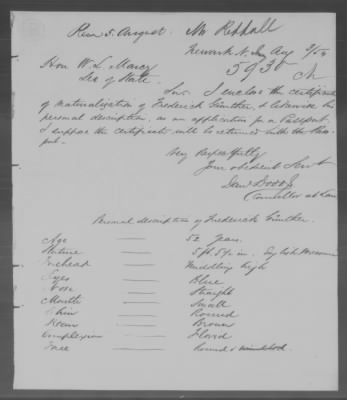 Recd 5. August. Mr
Newark N. Jersey Aug 4/54
5930
Hon W. L. Marcy
Sec of State.
Sir I enclose the certificate
of naturalization of Frederick Günther, & likewise his
personal description, as an application for a Passport.
I suppose the certificate will be returned with the Pass-
port.
Very Respectfully
Your obedient Servt
Counsellor at Law
Personal description of Frederick Günther.
Age 52 Years.
Stature 5 ft. 5½ in. English Measure
Forehead Middling high
Eyes Blue
Nose Straight
Mouth Small
Chin Round
Hair Brown
Complexion Florid
Face Round &